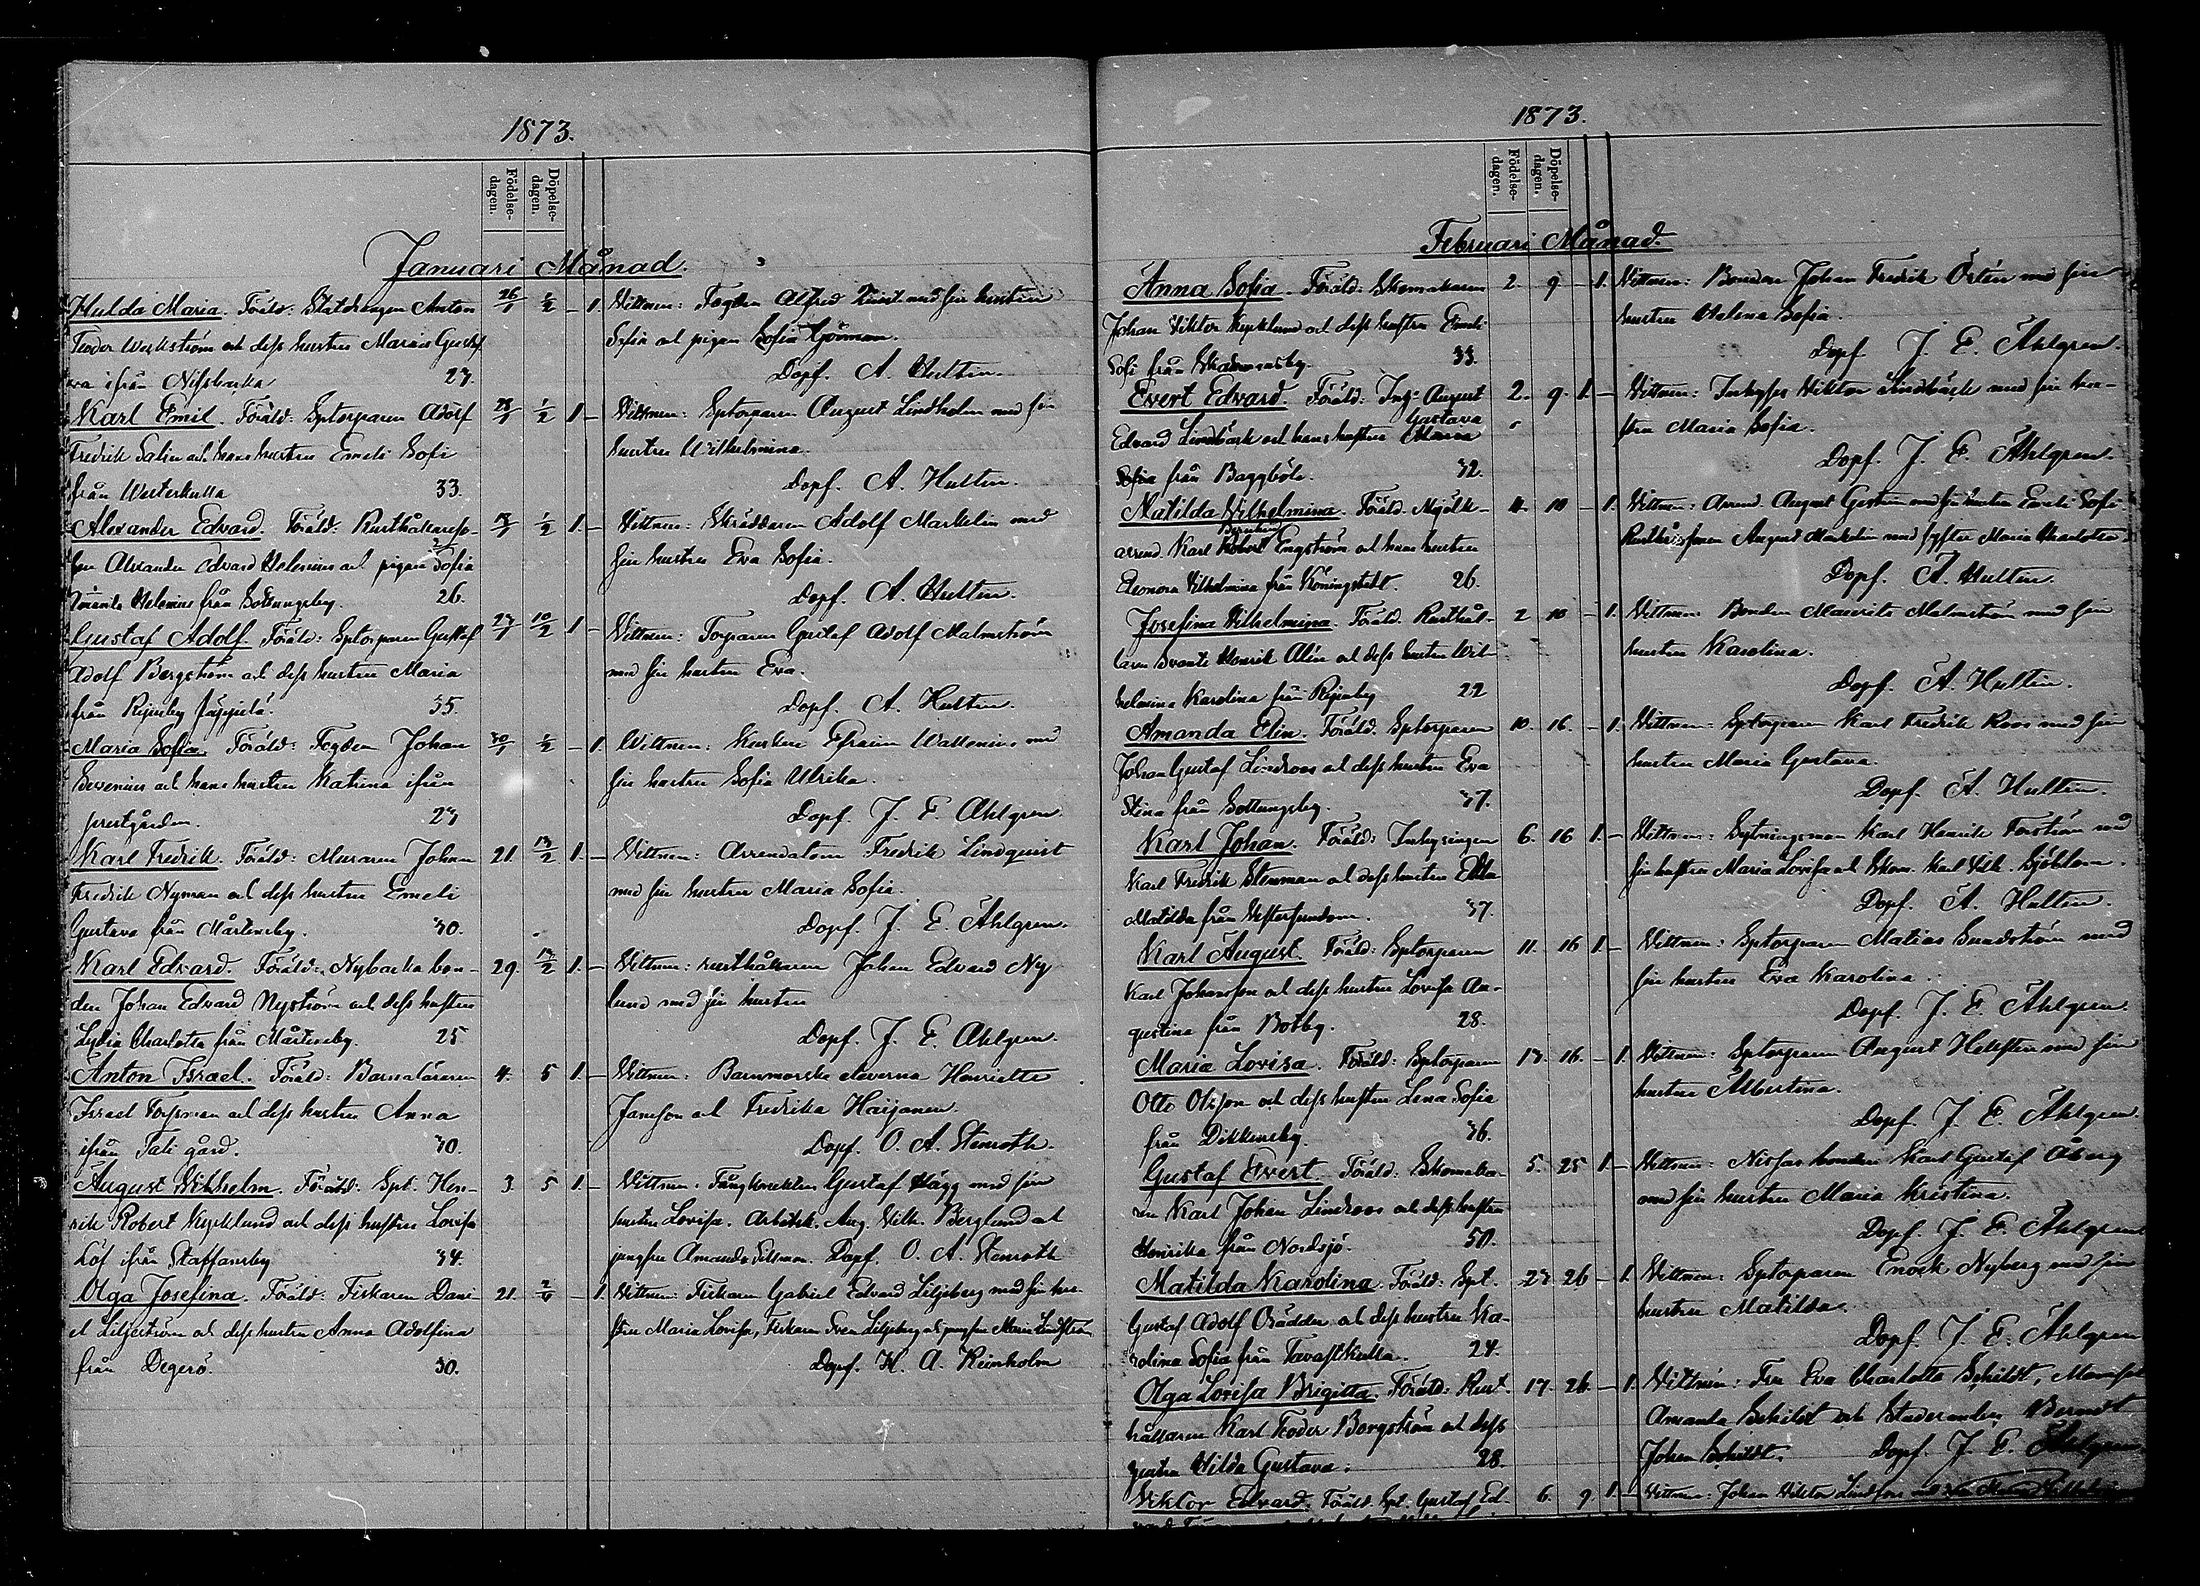 1873.
Födelse-dagen. Döpelse-dagen.
Januari Månad.
Hulda Maria. Föräld: Statdrängen Anton 26/1 2/2 – 1. Vittnen: Fogden Alfred med sin hustru
Teodor Weckström och dess hustru Maria Gust Sofia och pigan Sofia Görman.
va ifrån Nissbacka 23. Döpf. A. Hultin.
Karl Emil. Föräld: Sptorparen Adolf 1/2 1 – Vittnen: Sptorparen August Lindholm med sin
Fredrik Salin och hans hustru Emeli Sofi hustru Wilhelmina.
från Westerkulla 33. Döpf. A. Hultin.
Alexander Edvard. Föräld: Rusthållareso- 1/2 1. – Vittnen: Skräddaren Adolf Markelin med
sin hustru Eva Sofia.
nen Alexander Edvard Helenius och pigan Sofia
Helenius från Sottungsby. 26. Döpf. A. Hultin.
Gustaf Adolf. Föräld: Sptorparen Gustaf 27/1 10/2 1 – Vittnen: Torparen Gustaf Adolf Malmström
Adolf Bergström och dess hustru Maria med sin hustru Eva.
från 35. Döpf. A. Hultin.
Maria Sofia. Föräld: Fogden Johan 30/1 2/2 – 1. Vittnen: Efraim Wallenius med
Sevenius och hans hustru Katrina ifrån sin hustru Sofia Ulrika.
prestgården. 23 Döpf. J. E. Ahlgren.
Karl Fredrik. Föräld: Muraren Johan 21. 13/2 1. – Vittnen: Arrendatorn Fredrik Lindquist
Fredrik Nyman och dess hustru Emeli med sin hustru Maria Sofia.
Gustava från Mårtensby. 30. Döpf. J. E. Åhlgren.
Karl Edvard. Föräld: Nybacka bon- 29. 13/2 1. – Vittnen: rusthållaren Johan Edvard Ny
den Johan Edvard Nyström och dess hustru lund med sin hustru
Lydia Charlotta från Mårtensby. 25 Döpf. J. E. Ahlgren.
Anton Israel. Föräld: Barnaläraren 4. 5 1. – Vittnen: Barnmorske eleverna Henriette
Israel Forsman och dess hustru Anna Jansson och Fredrika Haijanen.
ifrån Tali gård. 30. Döpf. O. A. Stenroth.
August Wilhelm. Föräld: Spt. Hen- 3 5 1. – Vittnen: Gustaf Hägg med sin
rik Robert Kycklund och dess hustru Lovisa hustru Lovisa. Arbetsk. Aug. Vilh. Berglund och
Löf ifrån Staffansby 34. jungfru Amanda Döpf. O. A. Stenroth
Olga Josefina. Föräld: Fiskaren Dani- 21. 2/ – 1. Vittnen: Fiskaren Gabriel Edvard Liljeberg med sin hu-
el Liljeström och dess hustru Anna Adolfina stru Maria Lovisa, Fiskaren Sven Liljeberg och jungfru Maria Lindström
från Degerö. 30. Döpf. K. A. Reinholm
1873.
Födelse-dagen. Döpelse-dagen.
Februari Månad.
Anna Sofia. Föräld: Skomakaren 2. 9 – 1. Vittnen: Bonden Johan Fredrik Östén med sin
Johan Viktor Kycklund och dess hustru Emeli hustru Helena Sofia.
Sofi från 33. Döpf. J. E. Åhlgren.
Evert Edvard. Föräld: Inh: August 2. 9. 1. – Vittnen: Inhyses Viktor Lindbäck med sin hu-
Gustava
Edvard Lindbäck och hans hustru Maria stru Maria Sofia.
Sofia från Baggböle. 32. Döpf. J. E. Åhlgren.
Matilda Vilhelmina. Föräld. Mjölk- 4. 10 – 1. Vittnen: Arend. August med sin hustru Emeli Sofi
arrend. Karl Robert Engström och hans hustru August Markelin med syster Maria Charlotta.
Eleonora Vilhelmina från Köningstedt. 26. Döpf. A. Hultin.
Josefina Vilhelmina. Föräld. Rusthål- 2 10 – 1. Vittnen: Bonden Maurits Malmström med sin
laren Svante Henrik Alén och dess hustru Wil- hustru Karolina.
helmina Karolina från 22 Döpf. A. Hultin.
Amanda Elin. Föräld. Sptorparen 10. 16. – 1. Vittnen: Sptorparen Karl Fredrik Roos med sin
Johan Gustaf Lindroos och dess hustru Eva hustru Maria Gustava.
Stina från Sottungsby. 37. Döpf. A. Hultin.
Karl Johan. Föräld: Inhysingen 6. 16 1. – Vittnen: Sytningsman Karl Henrik Forström med
Karl Fredrik Stenman och dess hustru Edla sin hustru Maria Lovisa och Skom. Karl Vilh. Sjöblom.
Matilda från Vestersundom. 37. Döpf. A. Hultin.
Karl August. Föräld: Sptorparen 11. 16 1. – Vittnen: Sptorparen Matias Sundström med
Karl Johansson och dess hustru Lovisa Au- sin hustru Eva Karolina.
gustina från Botby. 28. Döpf. J. E. Åhlgren.
Maria Lovisa. Föräld: Sptorparen 13. 16. – 1. Vittnen: Sptorparen August Hellsten med sin
Otto Olsson och dess hustru Lena Sofia hustru Albertina.
från Dikkursby. 36. Döpf. J. E. Åhlgren.
Gustaf Evert. Föräld: Skomaka- 5. 25 1. – Vittnen: Nissas bonden Karl Gustaf Åberg
ren Karl Johan Lindroos och dess hustru med sin hustru Maria Kristina.
Henrika från Nordsjö. 50. Döpf. J. E. Åhlgren
Matilda Karolina. Föräld: Spt. 23. 26 – 1. Vittnen: Sptorparen Enock Nyberg med sin
Gustaf Adolf och dess hustru Ka- hustru Matilda.
rolina Sofia från Tavastkulla. 24. Döpf. J. E. Åhlgren
Olga Lovisa Brigitta. Föräld: Rust- 17. 26. – 1. Vittnen: Fru Eva Charlotta Schildt, Mamsell
hållaren Karl Teodor Borgström och dess Amanda Schildt och Studeranden Berndt
hustru Hilda Gustava. 28. Johan Schildt. Döpf. J. E. Åhlgren
Viktor Edvard. Föräld. Spt. Gustaf Ed- 6. 9 1. – Vittnen: Johan Viktor Lindfors